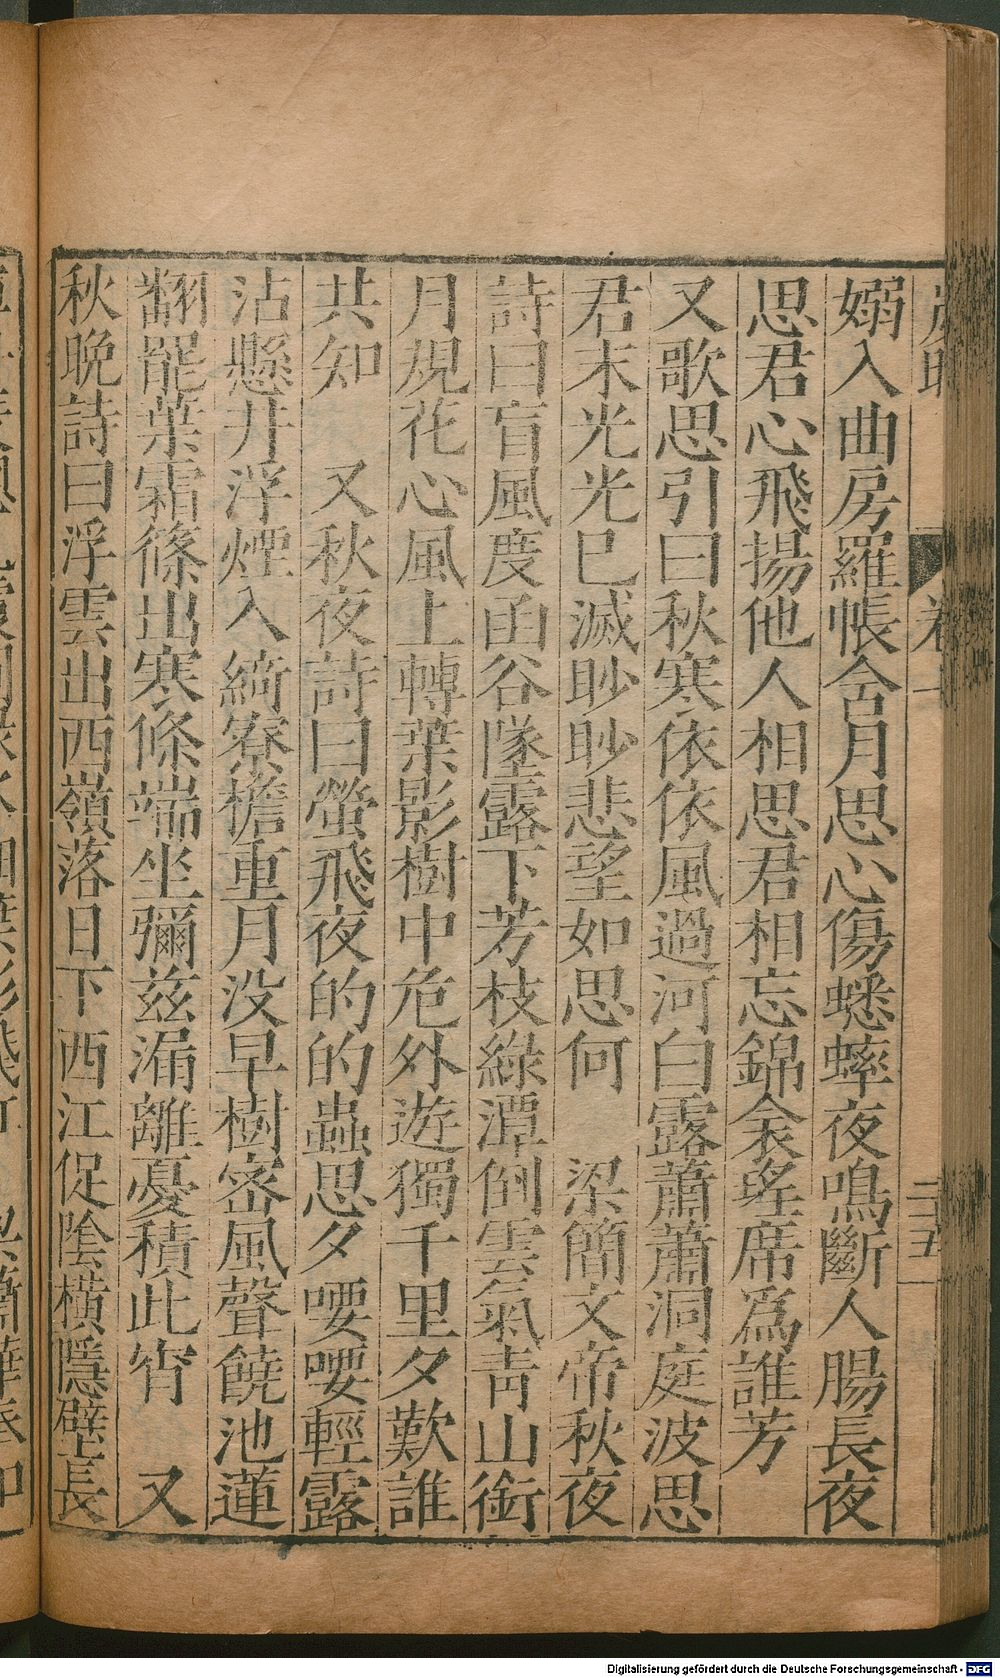 嫋入曲房羅帳含月思心傷蟋蟀夜鳴斷人腸長夜
思君心飛揚他人相思君相忘錦衾瑤席為誰芳
又歌思引曰秋寒依依風過河白露蕭蕭洞庭波思
君末光光已滅眇眇悲望如思何　梁簡文帝秋夜
詩曰盲風度函谷墜露下芳枝綠潭倒雲氣青山銜
月規花心風上轉葉影樹中危外遊獨千里夕歎誰
共知　又秋夜詩曰螢飛夜的的蟲思夕喓喓輕露
沾懸井浮煙入綺寮檐重月没早樹密風聲饒池蓮
翻罷葉霜篠出寒條端坐彌兹漏離憂積此宵　又
秋晚詩曰浮雲出西嶺落日下西江促陰橫隱壁長
卷
二十五
Digitalisierung gefördert durch die Deutsche Forschungsgemeinschaft - DFG